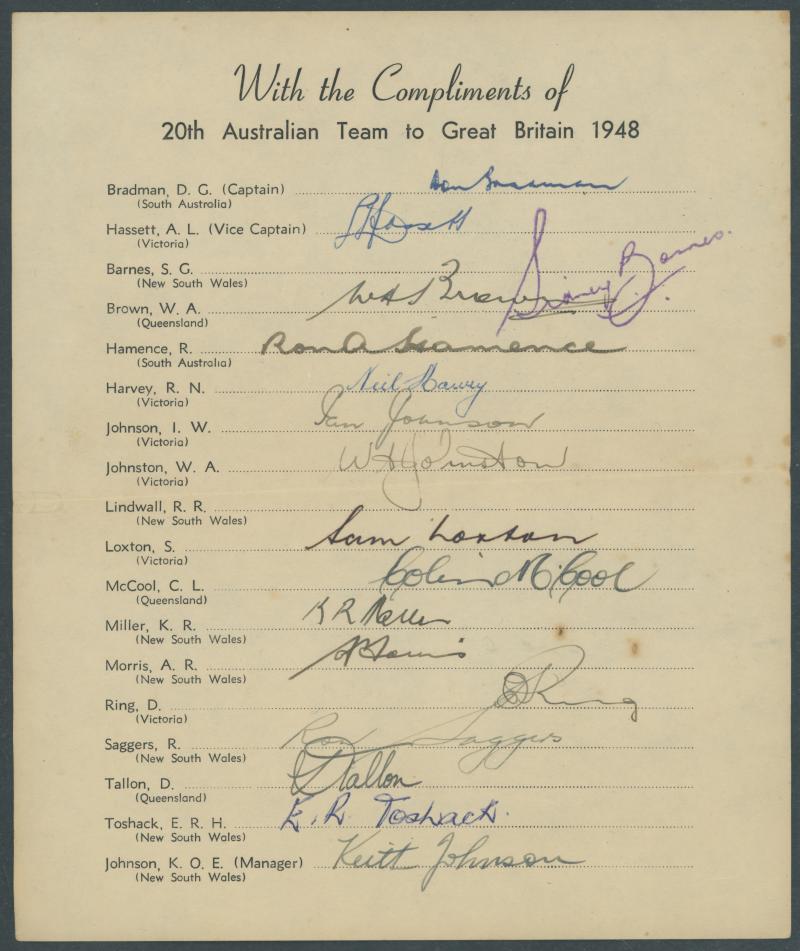 With the Compliments of
20th Australian Team to Great Britain 1948
Bradman, D. G. (Captain) Don Bradman
(South Australia)
Hassett, A. L. (Vice Captain) A L Hassett
(Victoria)
Barnes, S. G. Sidney G. Barnes.
(New South Wales)
Brown, W. A. W A Brown
(Queensland)
Hamence, R. Ron A Hamence
(South Australia)
Harvey, R. N. Neil Harvey
(Victoria)
Johnson, I. W. Ian Johnson
(Victoria)
Johnston, W. A. W A Johnston
(Victoria)
Lindwall, R. R.
(New South Wales)
Loxton, S. Sam Loxton
(Victoria)
McCool, C. L. Colin McCool
(Queensland)
Miller, K. R. K R Miller
(New South Wales)
Morris, A. R. A R Morris
(New South Wales)
Ring, D. D Ring
(Victoria)
Saggers, R. Ron Saggers
(New South Wales)
Tallon, D. D Tallon
(Queensland)
Toshack, E. R. H. E. R. Toshack.
(New South Wales)
Johnson, K. O. E. (Manager) Keith Johnson
(New South Wales)